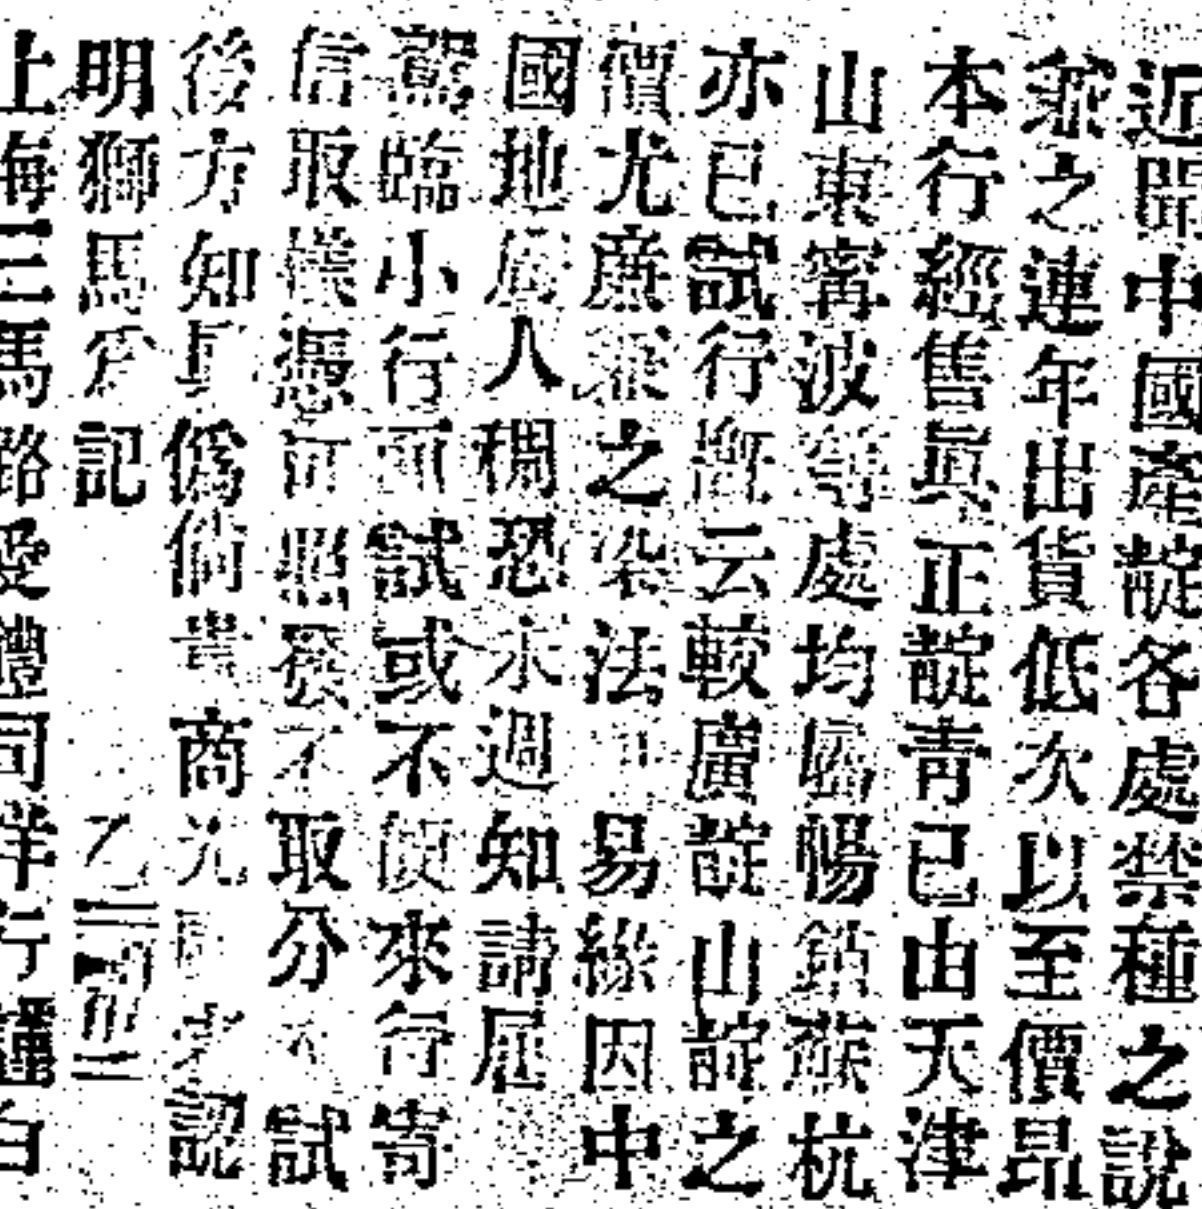 近聞中國產靛各處禁種之說
兼之連年出貨低次以至價昂
本行經售眞正靛青已由天津
山東寗波等處均臨暢銷蘇杭
亦已試行旣云較廣靛山靛之
價尤廉漲之染法 易緣因中
國地居人稠恐未週知請屆
駕臨小行面試或不便來行寄
信取樣憑訂照發不取分 試
後方知眞僞倘貴商光 認
明獅馬爲記
上海三馬路愛禮司洋行謹白